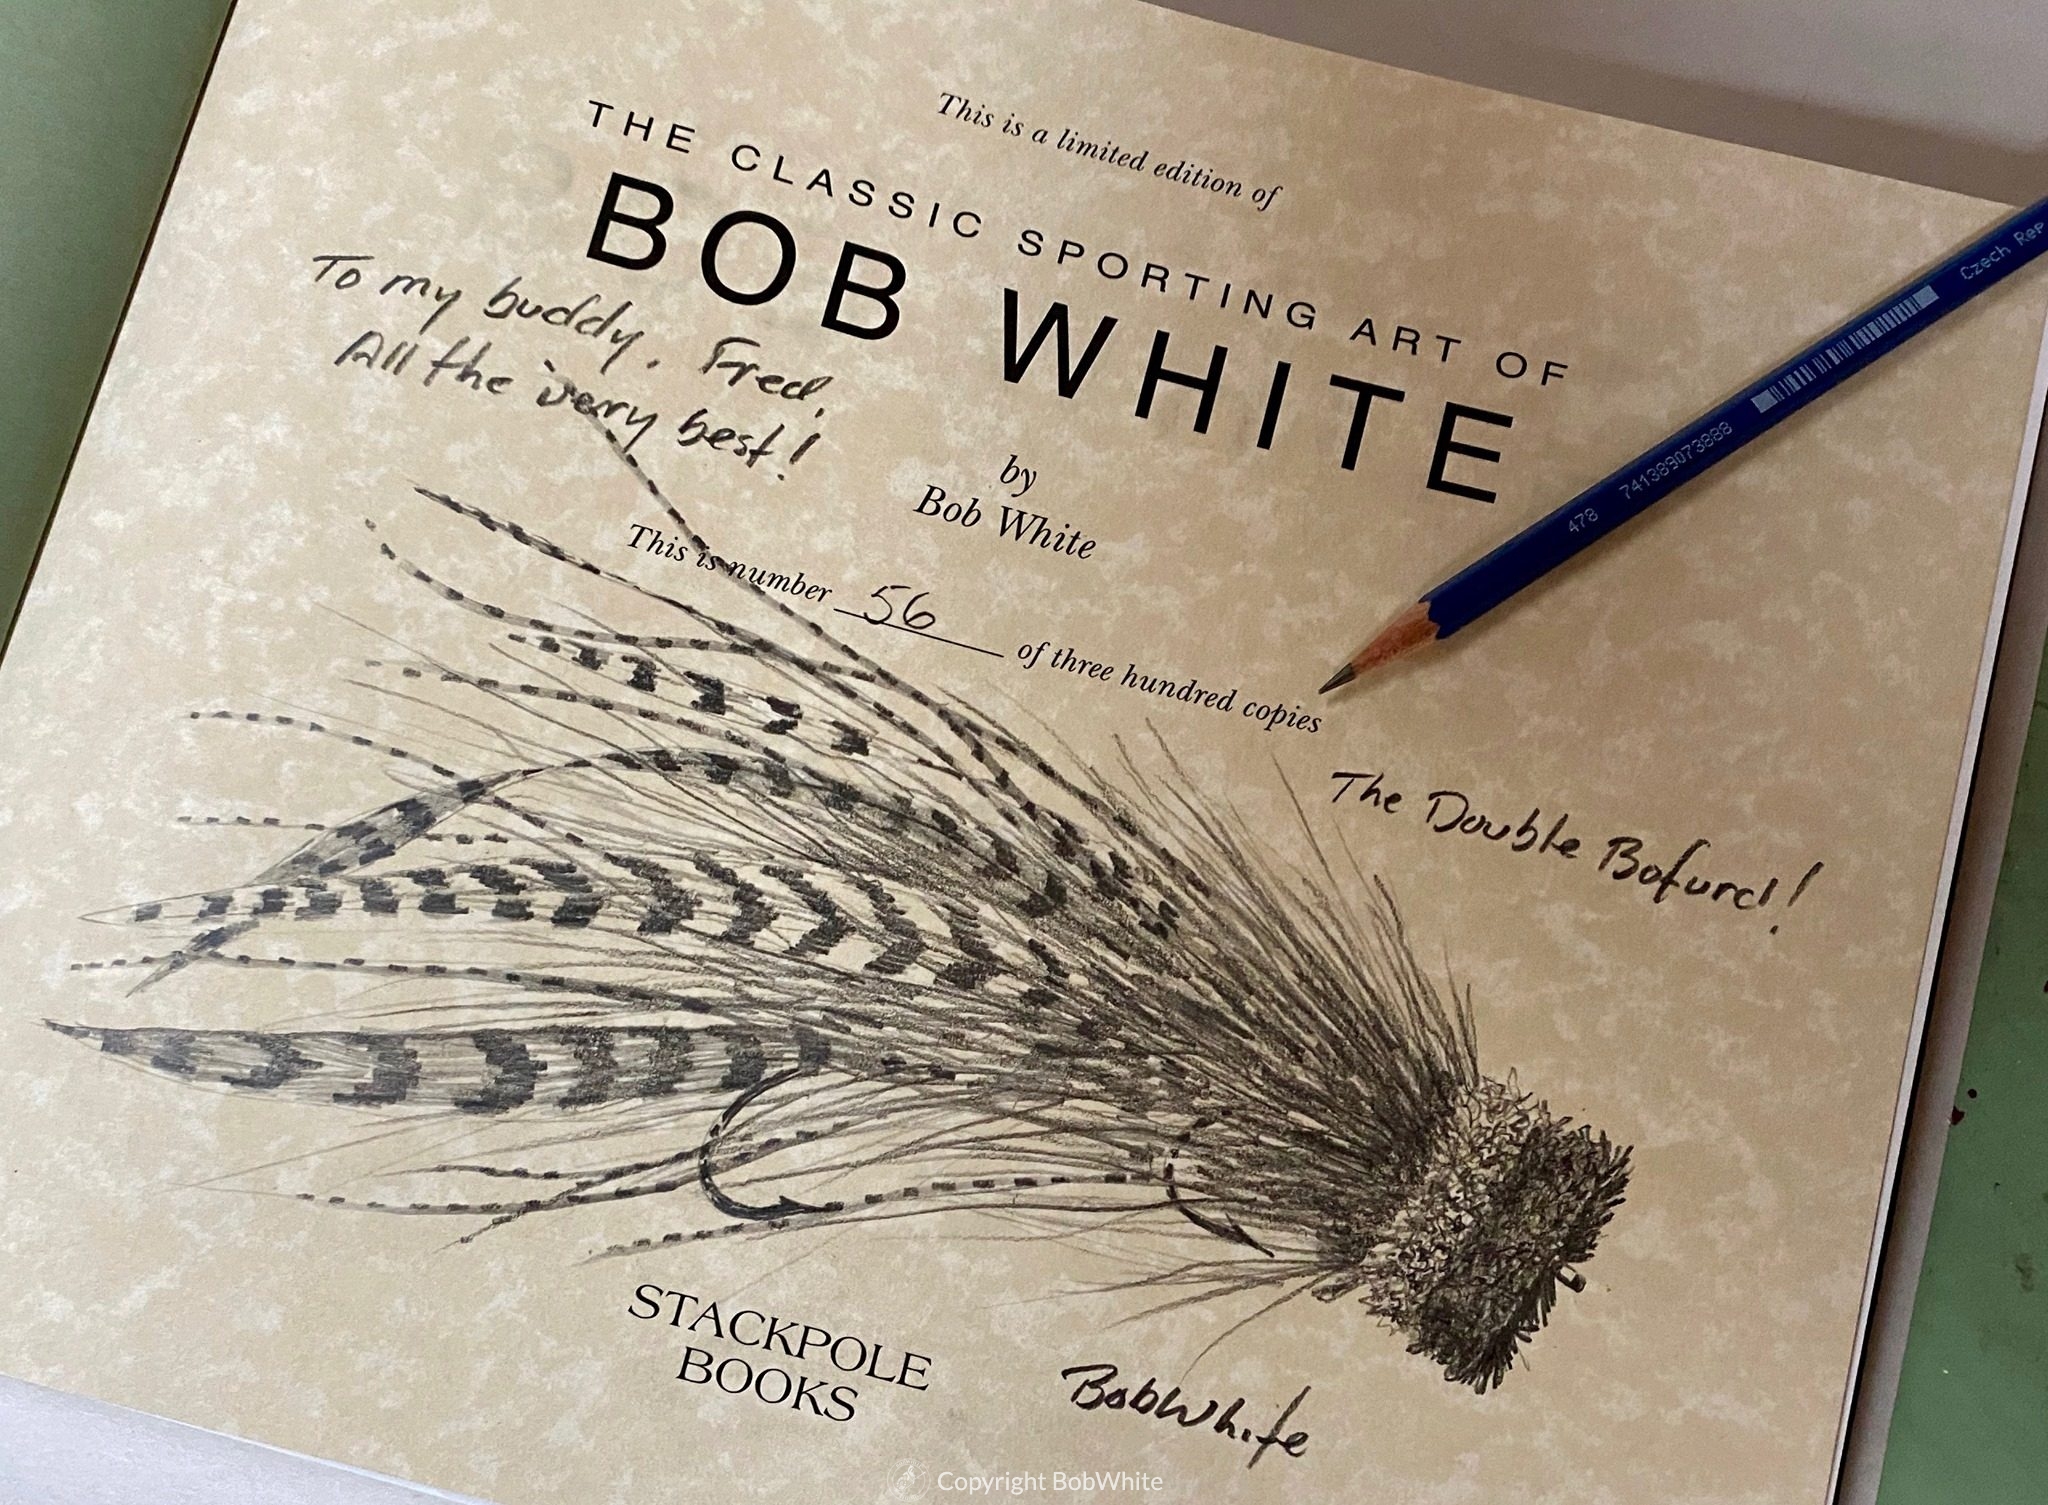 This is a limited edition of
THE CLASSIC SPORTING ART OF
BOB WHITE
To my buddy, Fred,
All the very best!
by
Bob White
This is number 56 of three hundred copies
The Double Bofurd!
STACKPOLE
BOOKS
BobWhite
478 741389073888 Czech Rep
Copyright BobWhite